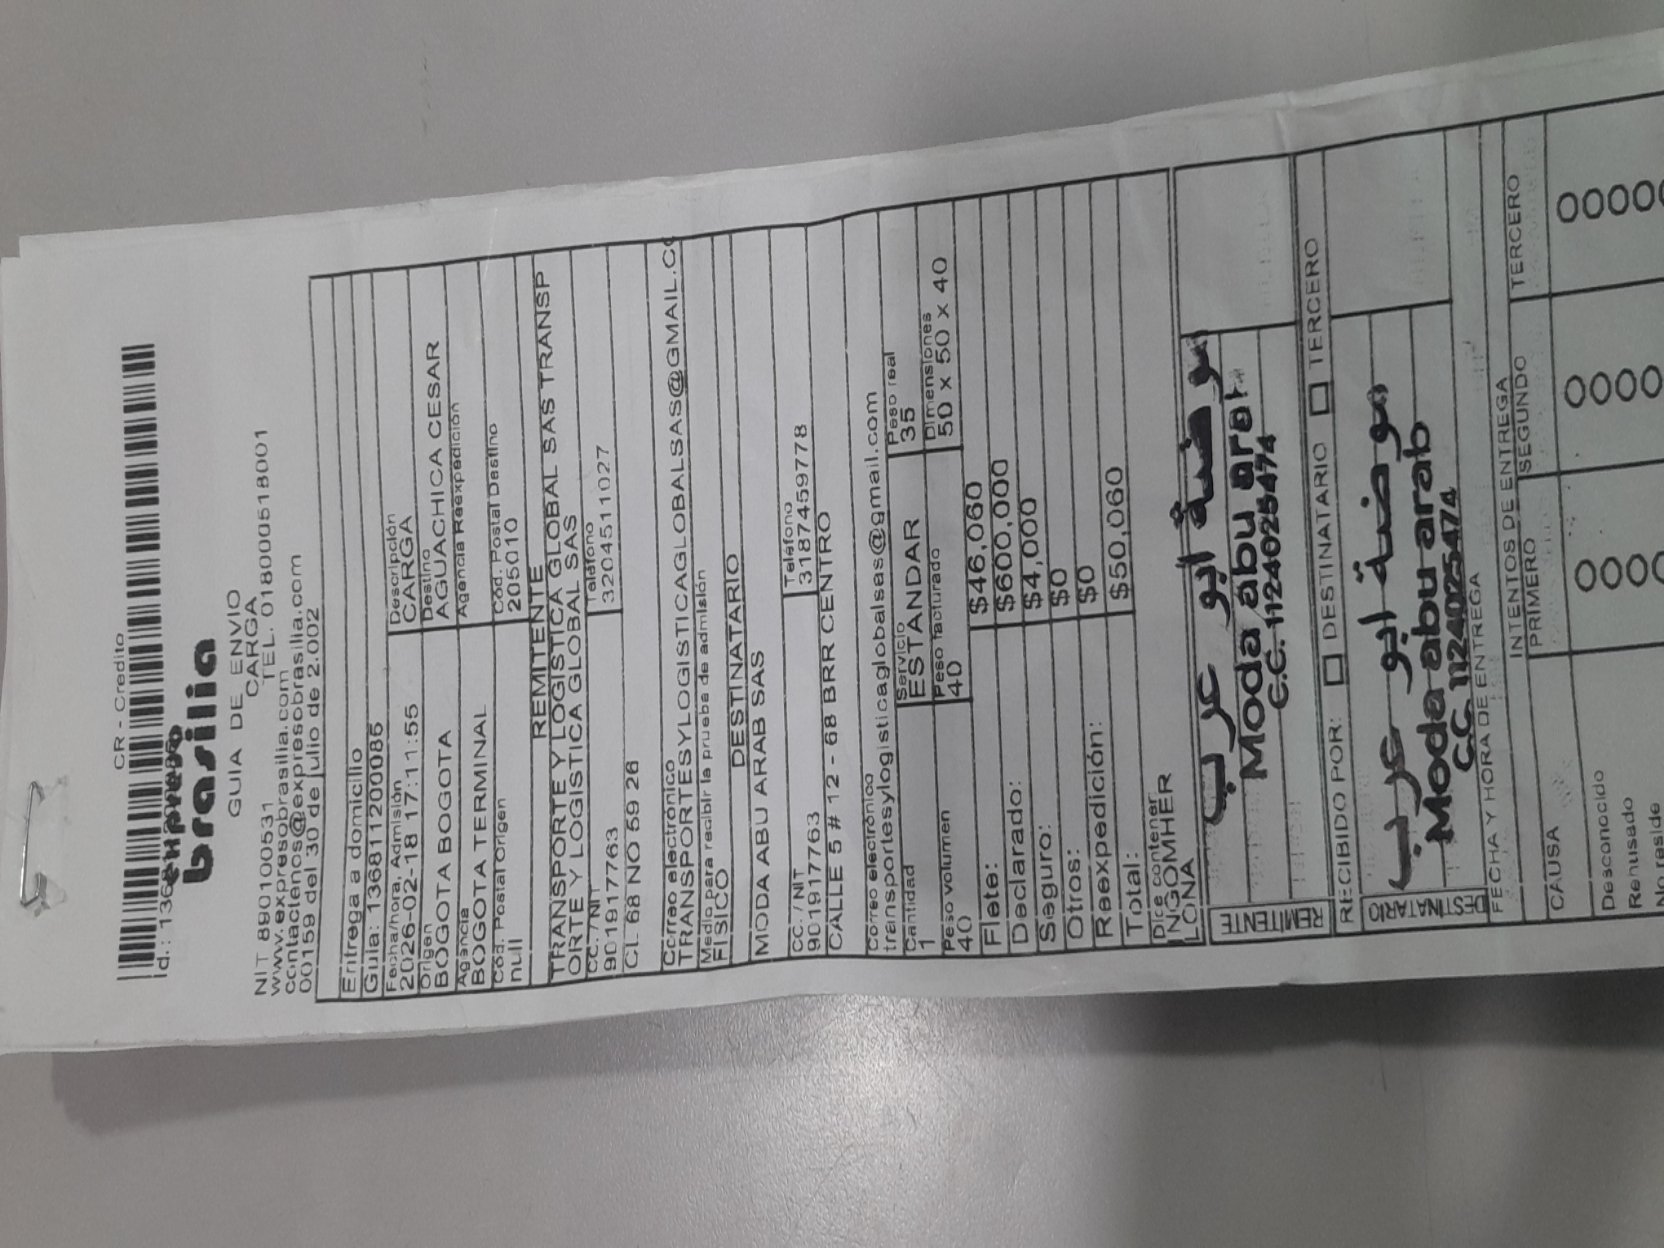 CR - Credito
expreso
brasilia
GUIA DE ENVIO
CARGA
NIT 890100531 TEL. 018000518001
www.expresobrasilia.com
contactenos@expresobrasilia.com
00159 del 30 de julio de 2.002
Entrega a domicilio
Guia: 1368111200085
Fecha/hora, Admisión Descripción
2026-02-18 17:11:55 CARGA
Origen Destino
BOGOTA BOGOTA AGUACHICA CESAR
Agencia Agencia Reexpedición
BOGOTA TERMINAL
Cód. Postal Origen Cód. Postal Destino
null 205010
REMITENTE
TRANSPORTE Y LOGISTICA GLOBAL SAS TRANSP
ORTE Y LOGISTICA GLOBAL SAS
CC./NIT Teléfono
901917763 3204511027
CL 68 NO 59 26
Correo electrónico
TRANSPORTESYLOGISTICAGLOBALSAS@GMAIL.CO
Medio para recibir la prueba de admisión
FISICO
DESTINATARIO
MODA ABU ARAB SAS
CC./NIT Teléfono
901917763 3187459778
CALLE 5 # 12 - 68 BRR CENTRO
Correo electrónico
transportesylogisticaglobalsas@gmail.com
Cantidad Servicio Peso real
1 ESTANDAR 35
Peso volumen Peso facturado Dimensiones
40 40 50 x 50 x 40
Flete: $46,060
Declarado: $600,000
Seguro: $4,000
Otros: $0
Reexpedición: $0
Total: $50,060
Dice contener
INGOMHER
LONA
REMITENTE
موضة ابو عرب
Moda abu arab
C.C. 1124025474
RECIBIDO POR: DESTINATARIO TERCERO
DESTINATARIO
موضة ابو عرب
Moda abu arab
C.C. 1124025474
FECHA Y HORA DE ENTREGA
INTENTOS DE ENTREGA
PRIMERO SEGUNDO TERCERO
CAUSA
Desconocido
Rehusado
No reside